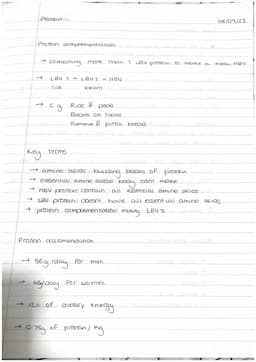 Protein
08/09/23
Protein complementation
→ combining more than 1 LBV protein to make a HBV
→ LBV 1 + LBV 2 = HBV
rice beans
→ e.g Rice & peas
Beans on toast
Hummus & pitta bread
Key terms
→ amino acids: building blocks of protein
→ essential amino acids: body can't make
→ HBV protein: contain all essential amino acids
→ LBV protein: doesn't have all essential amino acids
→ protein complementation: mixing LBV's
Protein
→ 56g/day for men
→ 45g/day for women
→ of dietary energy
→ 0.75g of protein/kg